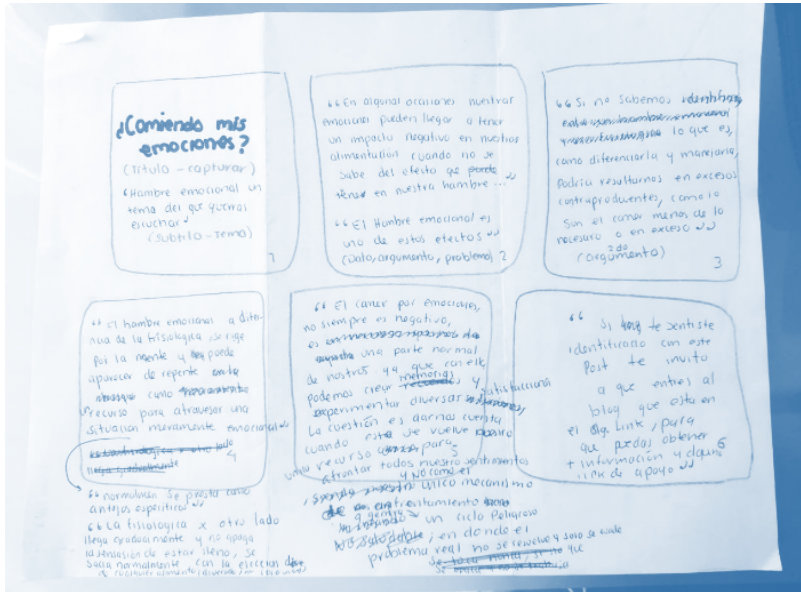 ¿Comiendo mis
emociones?
(Título - capturar)
"Hambre emocional un
tema del que querras
escuchar"
(subtitlo - Tema)
1
"En algunas ocasiones nuestras
emociones pueden llegar a tener
un impacto negativo en nuestras
alimentación cuando no se
sabe del efecto que puede
tener en nuestra hambre...
"El Hambre emocional es
uno de estos efectos"
(Dato, argumento, problema) 2
"Si no sabemos identificar
lo que es,
como diferenciarla y manejarla,
Podría resultarnos en excesos
contraproducentes, como lo
son el comer menos de lo
necesario o en exceso"
(2do argumento)
3
"El hambre emocional a dife
ncia de la fisiologica, se rige
por la mente y puede
aparecer de repente
como
recurso para atravesar una
situación meramente emocional"
4
llega gradualmente
"normalmen se presta como
antojos especificos"
"La fisiologica x otro lado
llega gradualmente y no apaga
la sensación de estar lleno, se
sacia normalmente con la eleccion de
"El comer por emociones,
no siempre es negativo,
es
una parte normal
de nostros ya que con ella
podemos crear memorias y
experimentar diversas satisfacciones
La cuestión es darnos cuenta
cuando este se vuelve nuestro
unico recurso para
5
afrontar todos nuestro sentimientos
y no como el
unico mecanismo
de enfrentamiento
a generar un ciclo Peligroso
No saludable, en donde el
problema real no se resuelve y solo se evade
"Si te sentiste
identificado con este
Post te invito
a que entres al
blog que esta en
el Link, para
que puedas obtener
+ información y alguna
link de apoyo"
6